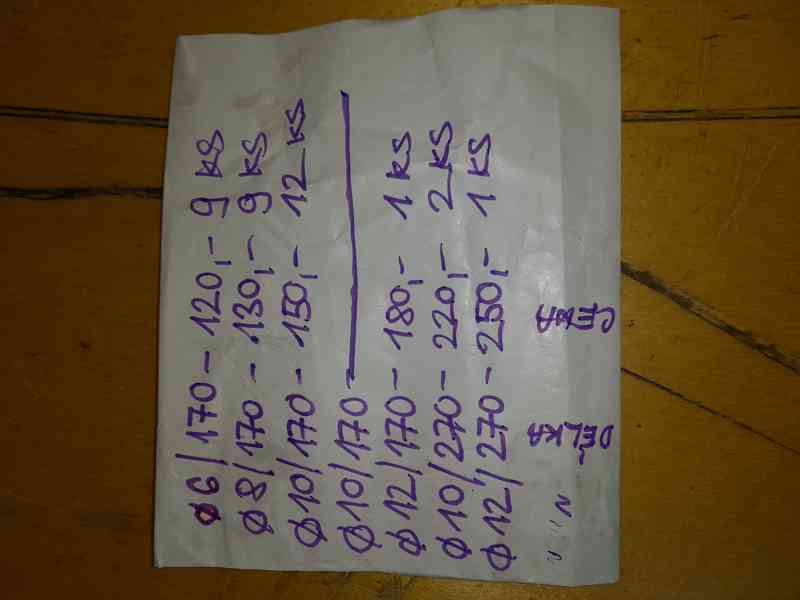 ø6/170 - 120,- 9 KS
ø8/170 - 130,- 9 KS
ø10/170 - 150,- 12 KS
ø10/170 -
ø12/170 - 180,- 1 KS
ø10/270 - 220,- 2 KS
ø12/270 - 250,- 1 KS
DÉLKA CENA